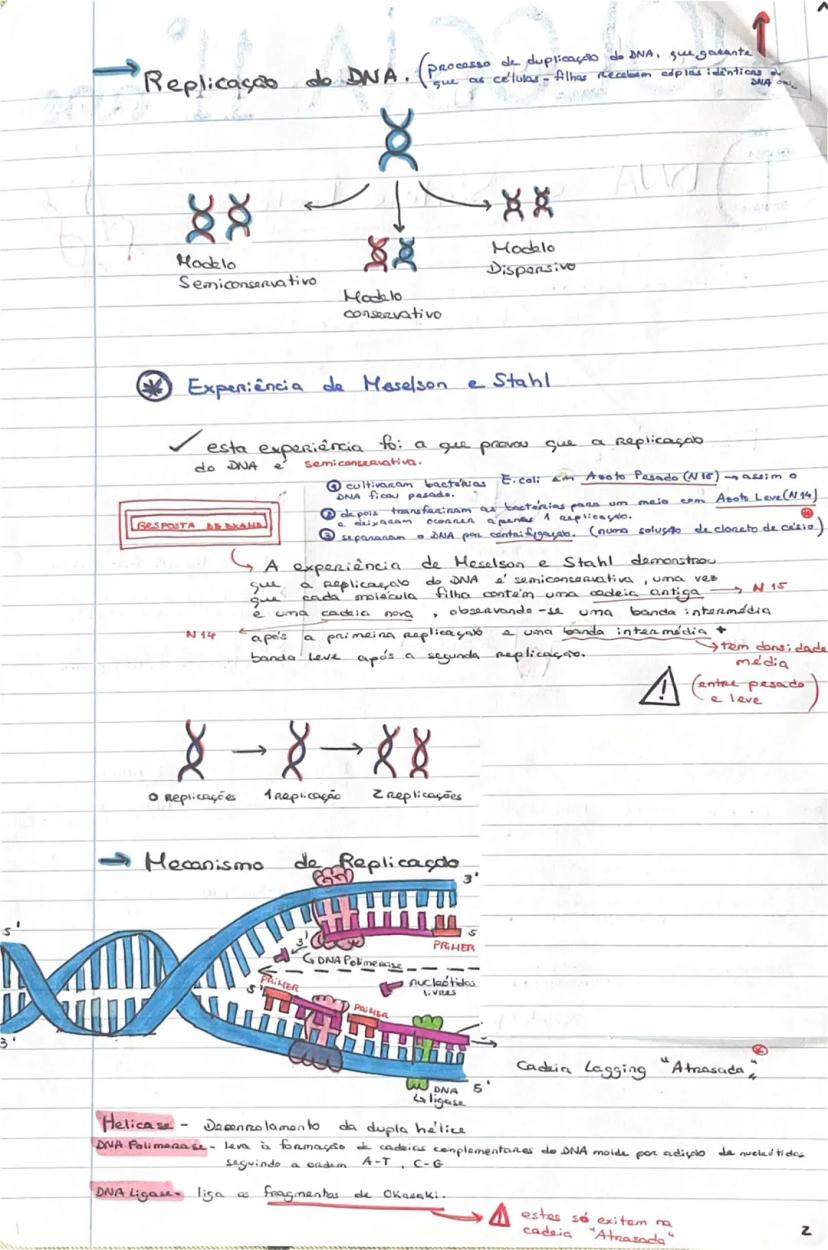 → Replicação do DNA. (processo de duplicação do DNA, que garante
que as células-filhas recebem cópias idênticas
DNA
Modelo
Semiconservativo
Modelo
conservativo
Modelo
Dispersivo
Experiência de Meselson e Stahl
✓ esta experiência foi a que provou que a replicação
do DNA é semiconservativa.
① cultivaram bactérias E.coli em Azoto Pesado (N15) → assim o
DNA ficou pesado.
② depois transferiram as bactérias para um meio com Azoto Leve (N14)
e deixaram ocorrer apenas 1 replicação.
③ separaram o DNA por centrifugação. (numa solução de cloreto de césio)
RESPOSTA DE EXAME
A experiência de Meselson e Stahl demonstrou
que a replicação do DNA é semiconservativa, uma vez
que cada molécula filha contém uma cadeia antiga → N15
e uma cadeia nova, observando-se uma banda intermédia
N14
após a primeira replicação e uma banda intermédia +
banda leve após a segunda replicação.
→ tem densidade
média
(entre pesado
e leve)
0 Replicações → 1 Replicação → 2 Replicações
→ Mecanismo de Replicação
3'
5'
5
PRIMER
3'
DNA Polimerase
nucleótidos
livres
PRIMER
5'
PRIMER
3'
5'
DNA
ligase
Cadeia Lagging "Atrasada"
Helicase - Desenrolamento da dupla hélice
DNA Polimerase - leva à formação de cadeias complementares do DNA molde por adição de nucleótidos
seguindo a ordem A-T, C-G
DNA Ligase - liga os fragmentos de Okasaki.
estes só exitem na
cadeia "Atrasada"
2